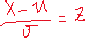 x - u / σ = z